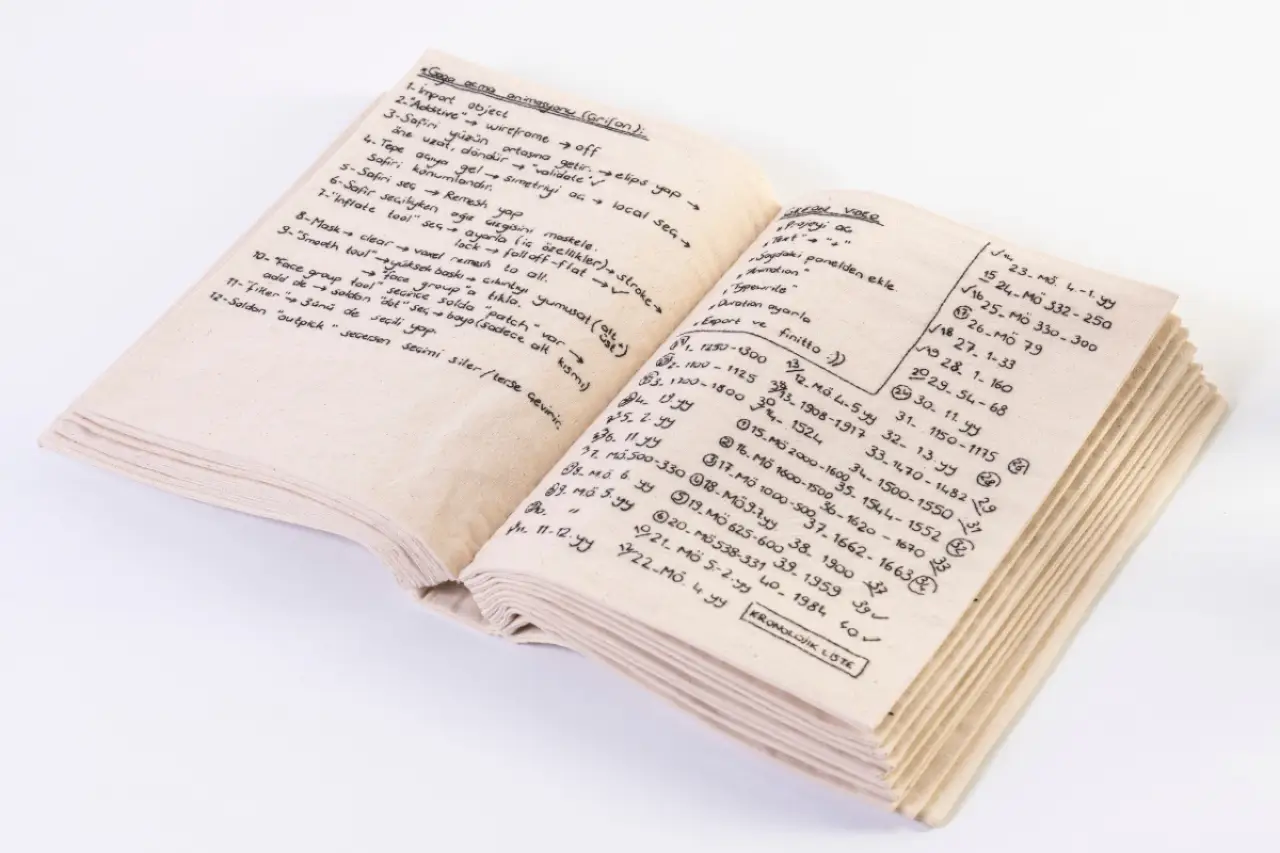 *Gaga açma animasyonu (Grifon):
1- Import object
2- "Additive" → wireframe → off
3- Safiri yüzün ortasına getir. → elips yap →
öne uzat, döndür → "validate" ✓
4- Tepe açıya gel → simetriyi aç → local seç →
Safiri konumlandır.
5- Safiri seç → Remesh yap
6- Safir seçiliyken ağız çizgisini maskele.
7- "Inflate tool" seç → ayarla (iç özellikler) → stroke →
lock → falloff-flat → ✓
8- Mask → clear → voxel remesh to all.
9- "Smooth tool" → yüksek baskı → çıkıntıyı yumuşat (alt, üst)
→ face group'a tıkla.
10- "Face group tool" seçince solda "patch" var →
add de → soldan "dot" seç → boya (sadece alt kısmı)
11- "Filter" → 3ünü de seçili yap
12- Soldan "outpick" seçersen seçimi siler / terse çevirir.
• Projeyi aç
• "Text" → "+"
• Sağdaki panelden ekle.
• "Animation"
• "Typewrite"
• Duration ayarla
• Export ve finitto :))
1- 1250-1300
2- 1100-1125
3- 1700-1800
4- 19.yy
5- 2.yy
6- 11.yy
7- Mö.500-330
8- Mö. 6. yy
9- Mö. 5. yy
10. "
11- 11-12.yy
13 12. Mö. 4-5 yy
13- 1908-1917
14- 1524
① 15. Mö 2000-1600
② 16. Mö 1600-1500
③ 17. Mö 1000-500
④ 18- Mö 9.7.yy
⑤ 19. Mö 625-600
⑥ 20- Mö 538-331
21- Mö 5-2.yy
22- Mö. 4. yy
23- Mö. 4-1. yy
15 24- Mö 332-250
✓16 25- Mö 330-300
⑰ 26- Mö 79
✓18 27- 1-33
✓19 28. 1-160
20 29. 54-68
30- 11. yy
31. 1150-1175
32- 13. yy
33- 1470-1482
34- 1500-1550 29
35. 1544-1552 31
36- 1620-1670 32
37- 1662-1663 33
38- 1900
39- 1959 37
40- 1984 39 ✓
40 ✓
KRONOLOJİK LİSTE